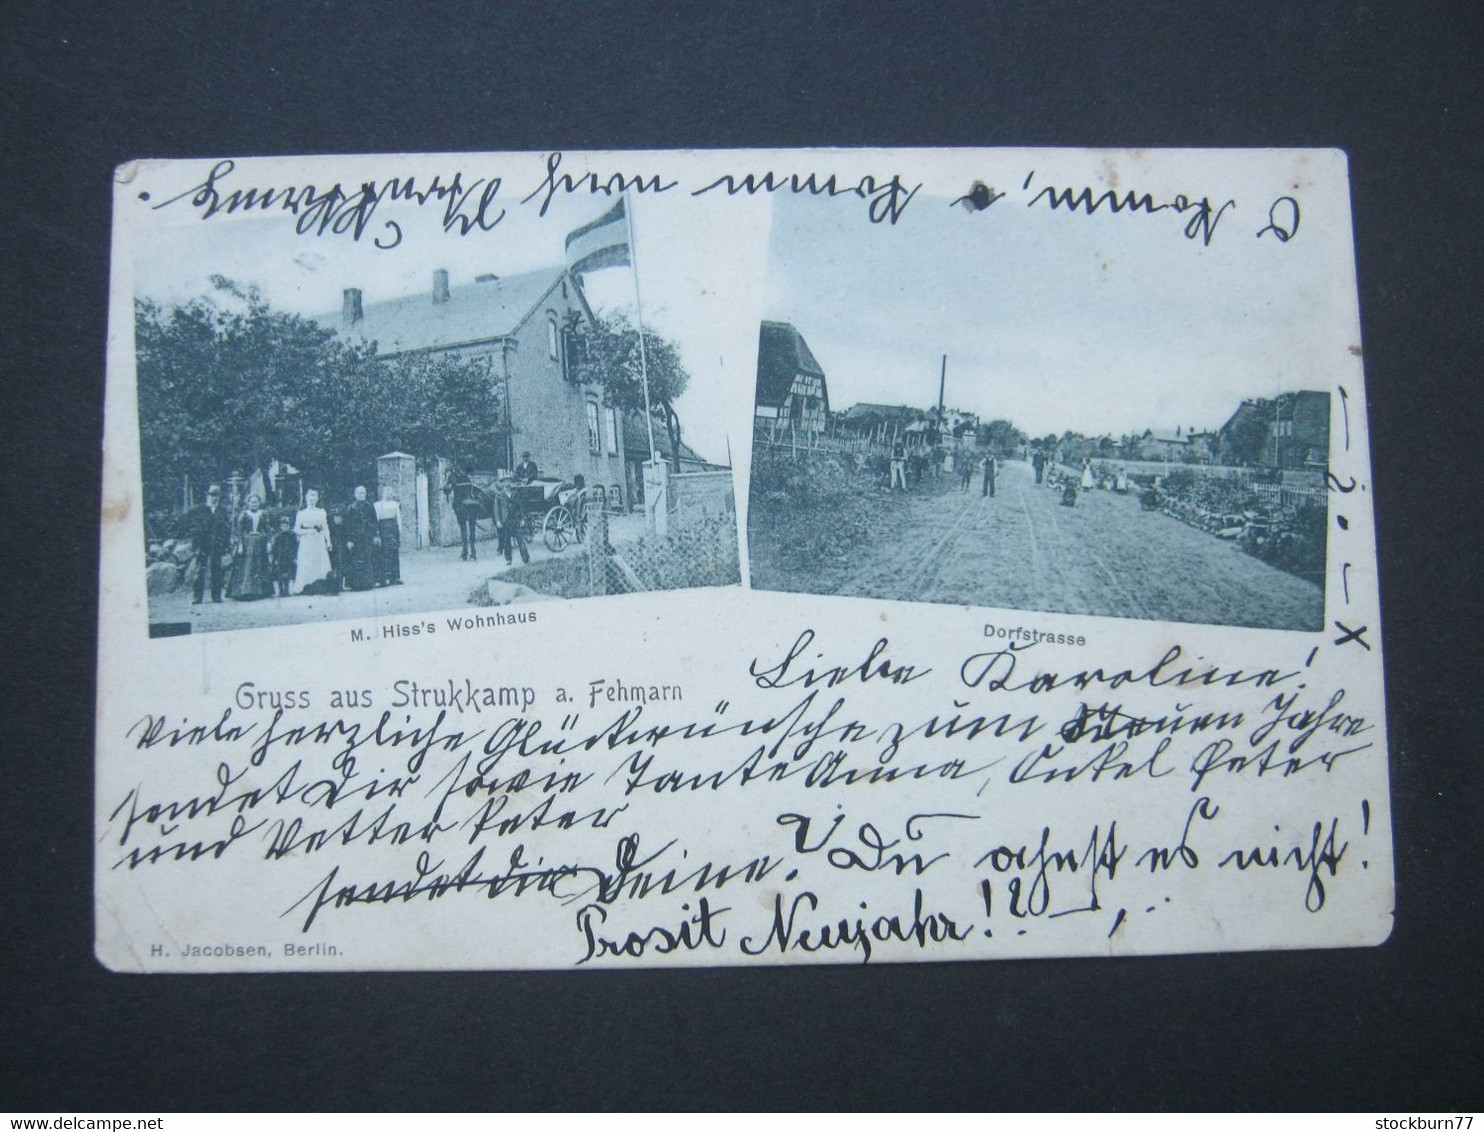 O komm, o komm nach Strukkamp.
M. Hiss's Wohnhaus
Dorfstrasse
Gruss aus Strukkamp a. Fehmarn
Liebe Karoline!
Viele herzliche Glückwünsche zum Neuen Jahre
sendet Dir sowie Tante Anna, Onkel Peter
und Vetter Peter
sendet die Deine? Du ahnst es nicht!
Prosit Neujahr!?
H. Jacobsen, Berlin.
stockburn77